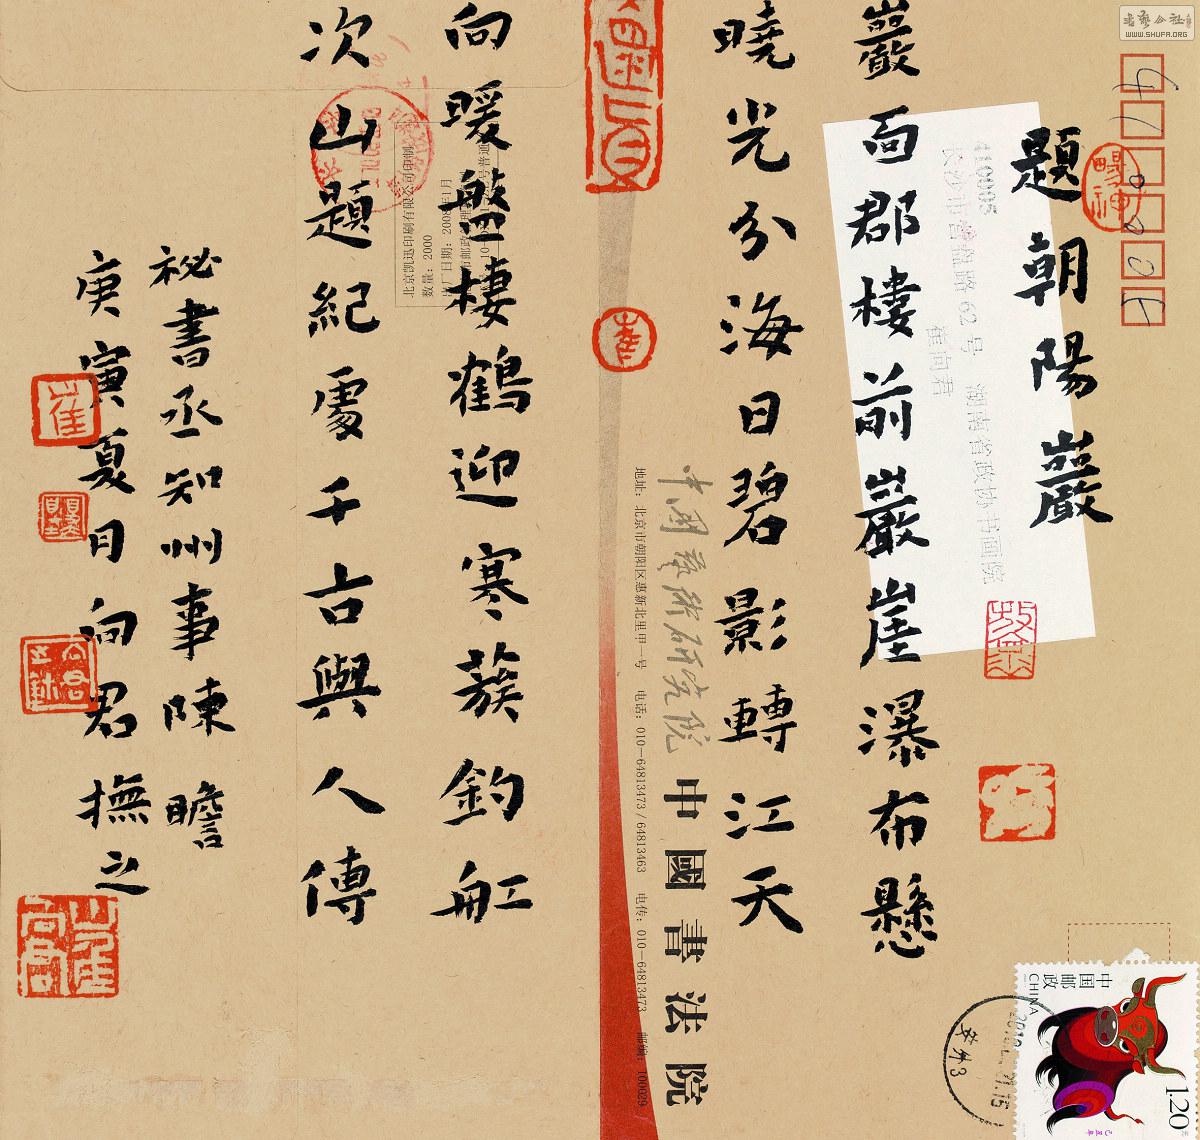 題朝陽巖
巖面郡樓前巖崖瀑布懸
曉光分海日碧影轉江天
向暖盤棲鶴迎寒蔟釣舡
次山題紀處千古與人傳
祕書丞知州事陳瞻
庚寅夏月向君撫之
中国藝術研究院
中國書法院
地址：北京市朝阳区惠新北里甲一号 电话：010—64813473 / 64813463 电传：010—64813473 邮编：100029
410005
长沙市营盘路 62 号 湖南省政协书画院
崔向君
北京凯迅印刷有限公司印制
数量：2000
出厂日期：2008年1月
中国邮政
CHINA
1.20元
己丑年
安外3
书艺公社
WWW.SHUFA.ORG